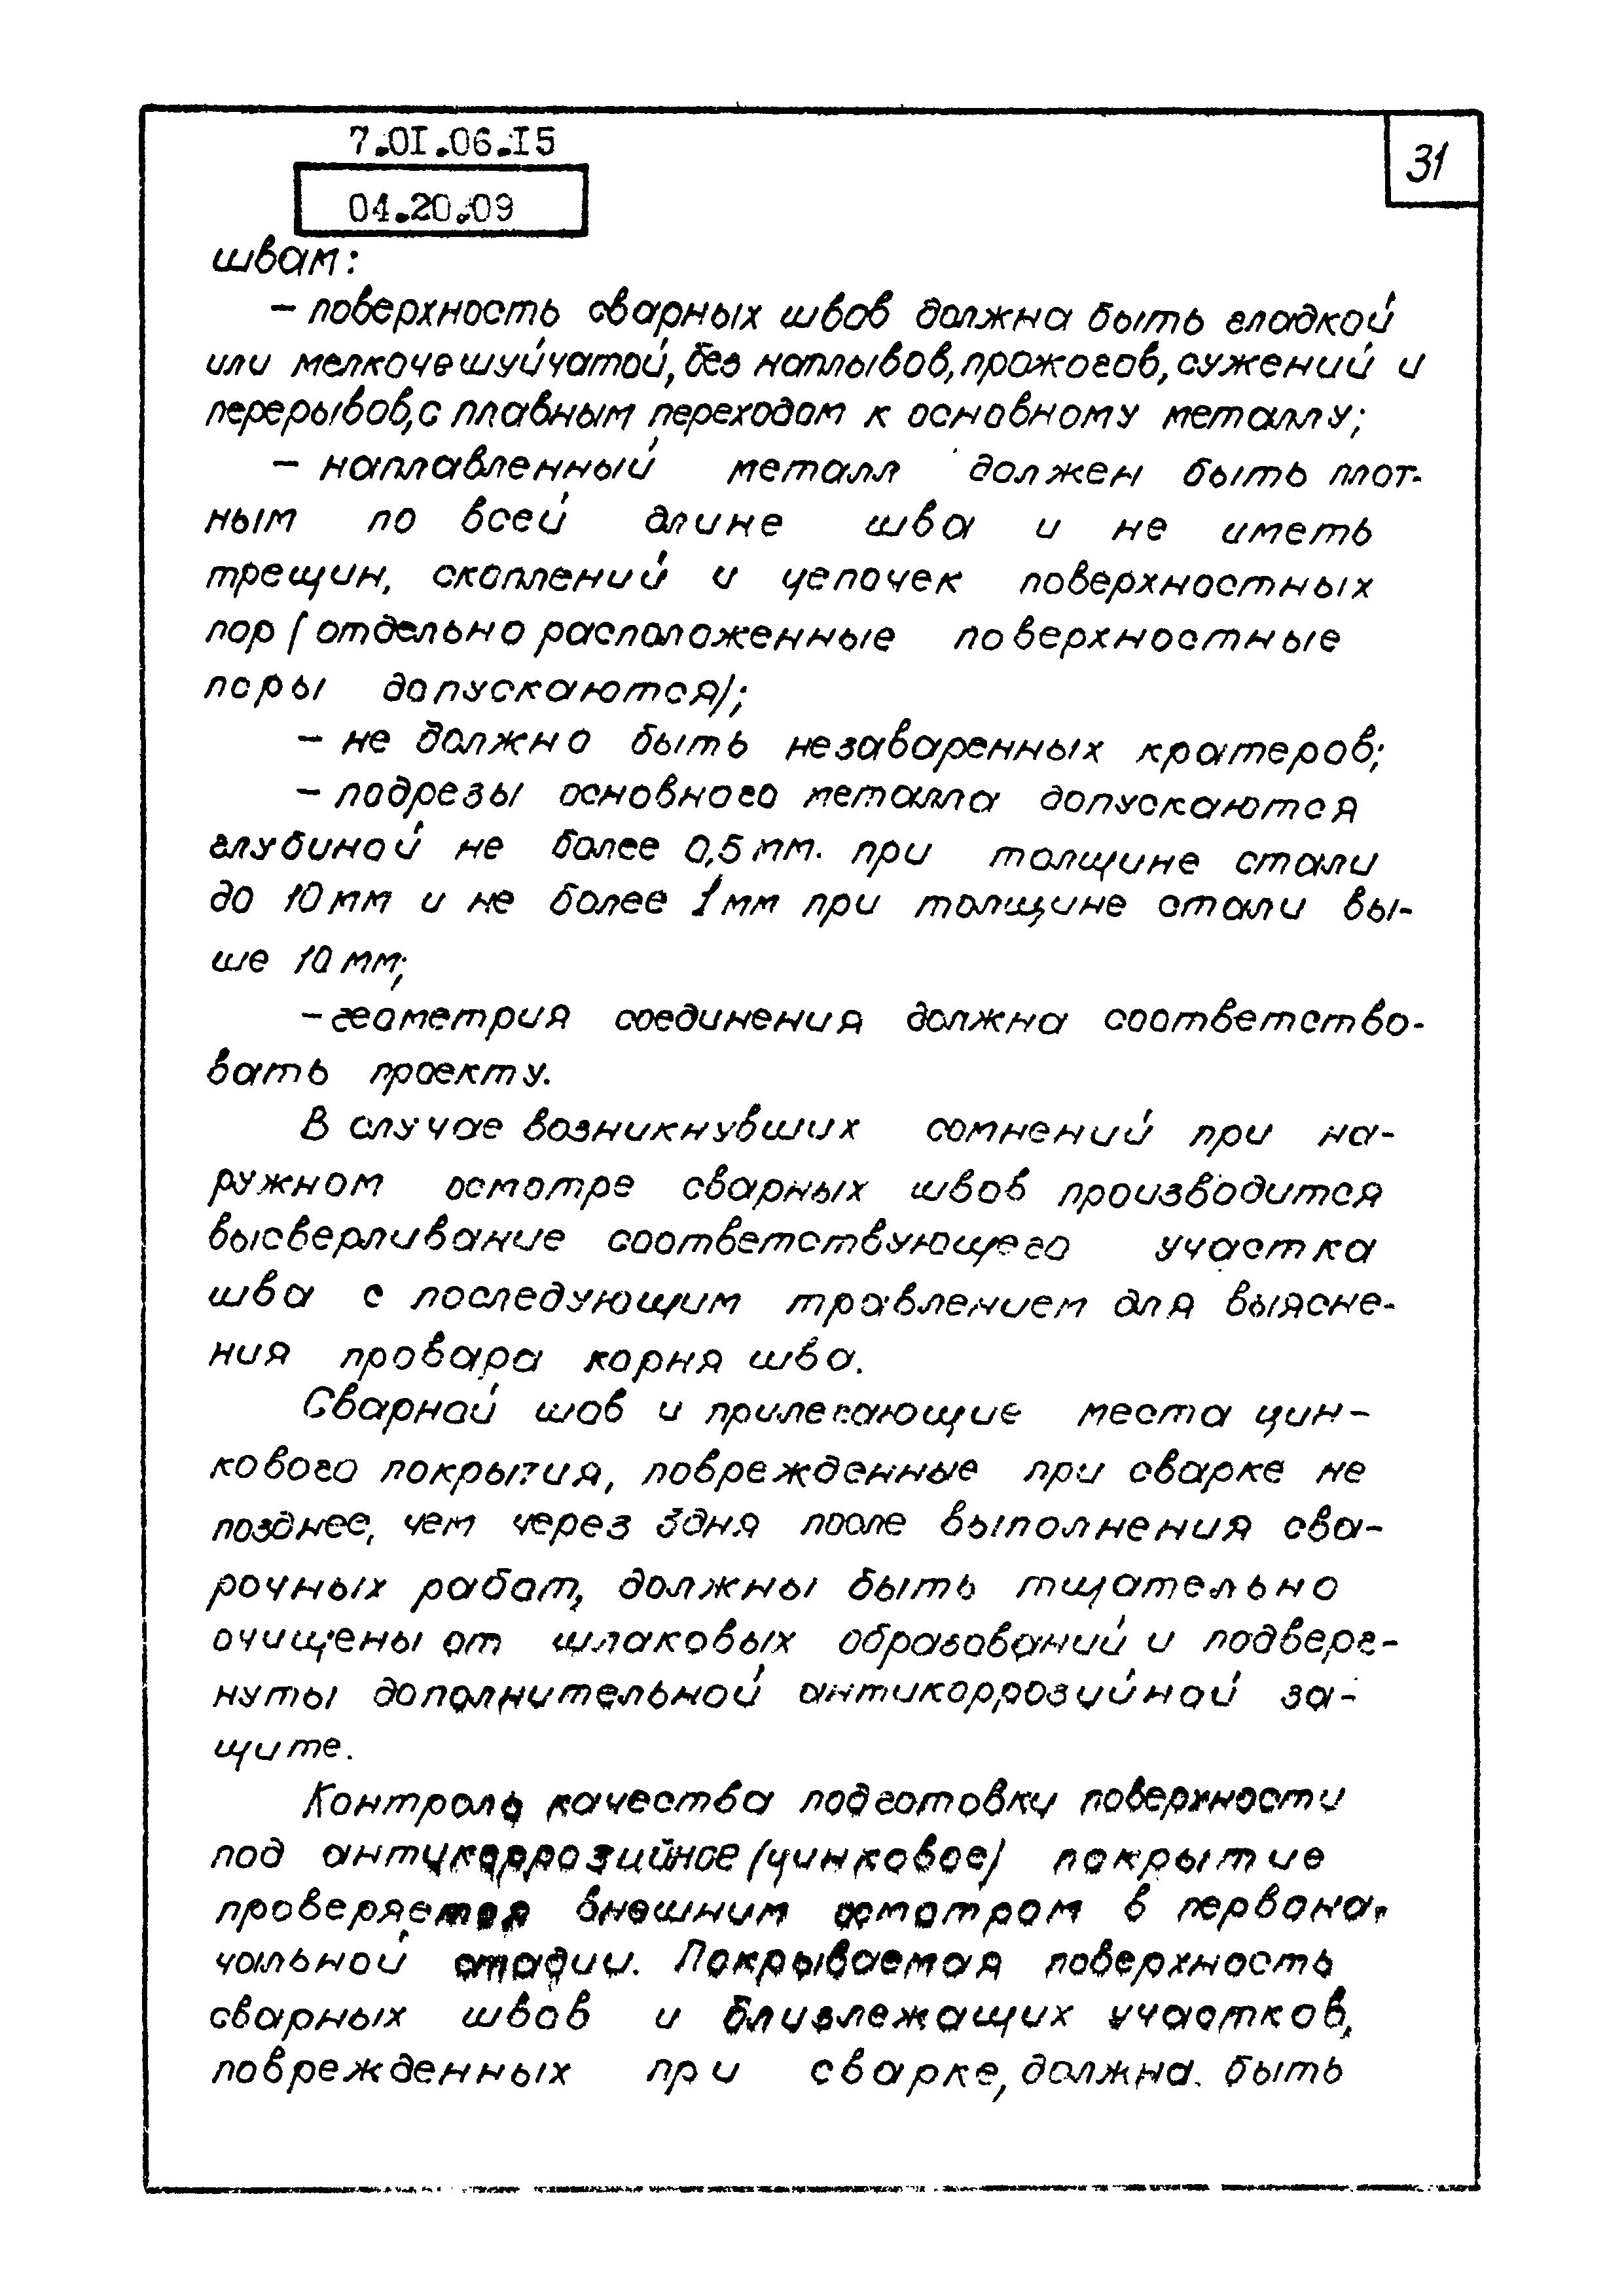 7.01.06.15
31
04.20.09
швам:
– поверхность сварных швов должна быть гладкой
или мелкочешуйчатой, без наплывов, прожогов, сужений и
перерывов, с плавным переходом к основному металлу;
– наплавленный металл должен быть плот-
ным по всей длине шва и не иметь
трещин, скоплений и цепочек поверхностных
пор /отдельно расположенные поверхностные
поры допускаются/;
– не должно быть незаваренных кратеров;
– подрезы основного металла допускаются
глубиной не более 0,5 мм. при толщине стали
до 10 мм и не более 1 мм при толщине стали вы-
ше 10 мм;
– геометрия соединения должна соответство-
вать проекту.
В случае возникнувших сомнений при на-
ружном осмотре сварных швов производится
высверливание соответствующего участка
шва с последующим травлением для выясне-
ния провара корня шва.
Сварной шов и прилегающие места цин-
кового покрытия, поврежденные при сварке не
позднее, чем через 3 дня после выполнения сва-
рочных работ, должны быть тщательно
очищены от шлаковых образований и подверг-
нуты дополнительной антикоррозийной за-
щите.
Контроль качества подготовки поверхности
под антикоррозийное /цинковое/ покрытие
проверяется внешним осмотром в первона-
чальной стадии. Покрываемая поверхность
сварных швов и близлежащих участков,
поврежденных при сварке, должна быть